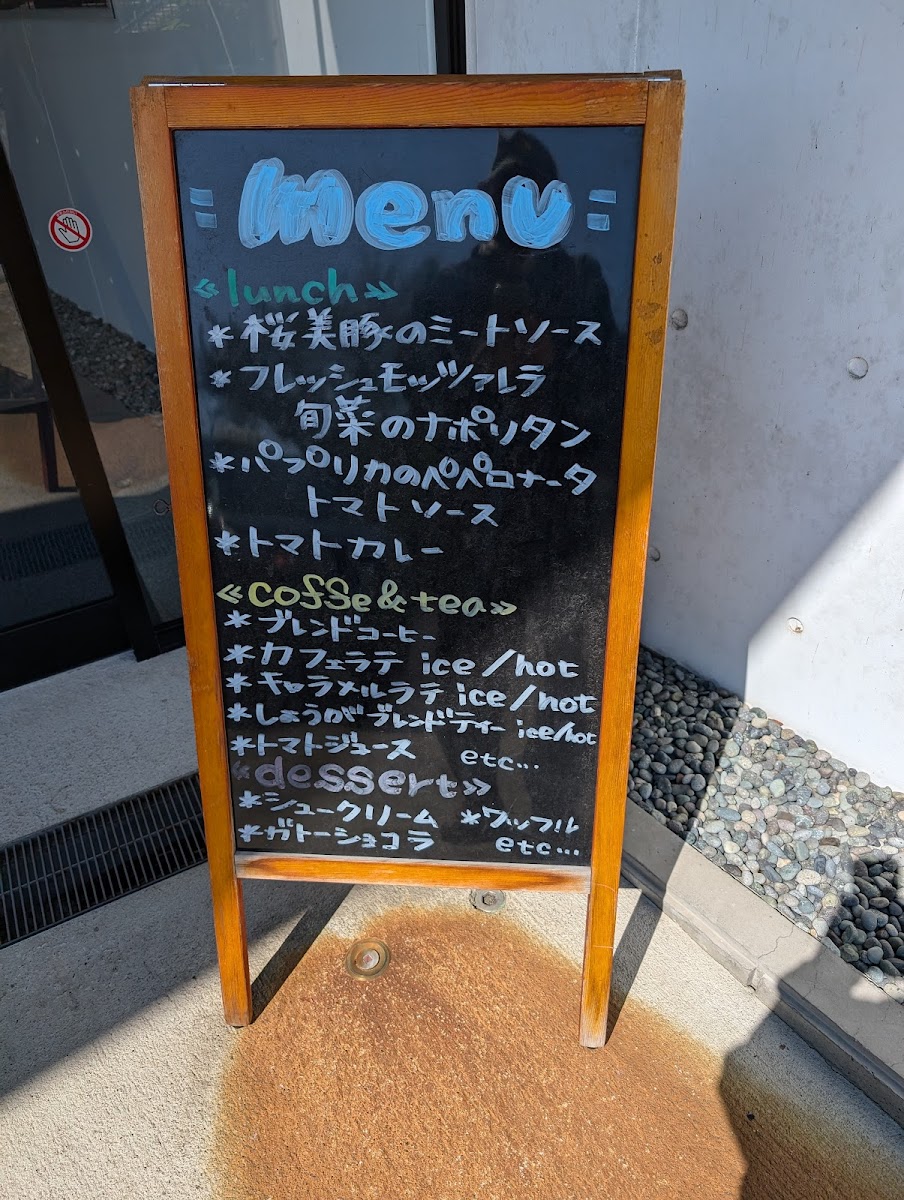 = menu =
«lunch»
*桜美豚のミートソース
*フレッシュモッツァレラ
旬菜のナポリタン
*パプリカのペペロナータ
トマトソース
*トマトカレー
«coffee&tea»
*ブレンドコーヒー
*カフェラテ ice/hot
*キャラメルラテ ice/hot
*しょうがブレンドティー ice/hot
*トマトジュース etc...
«dessert»
*シュークリーム *ワッフル
*ガトーショコラ etc...